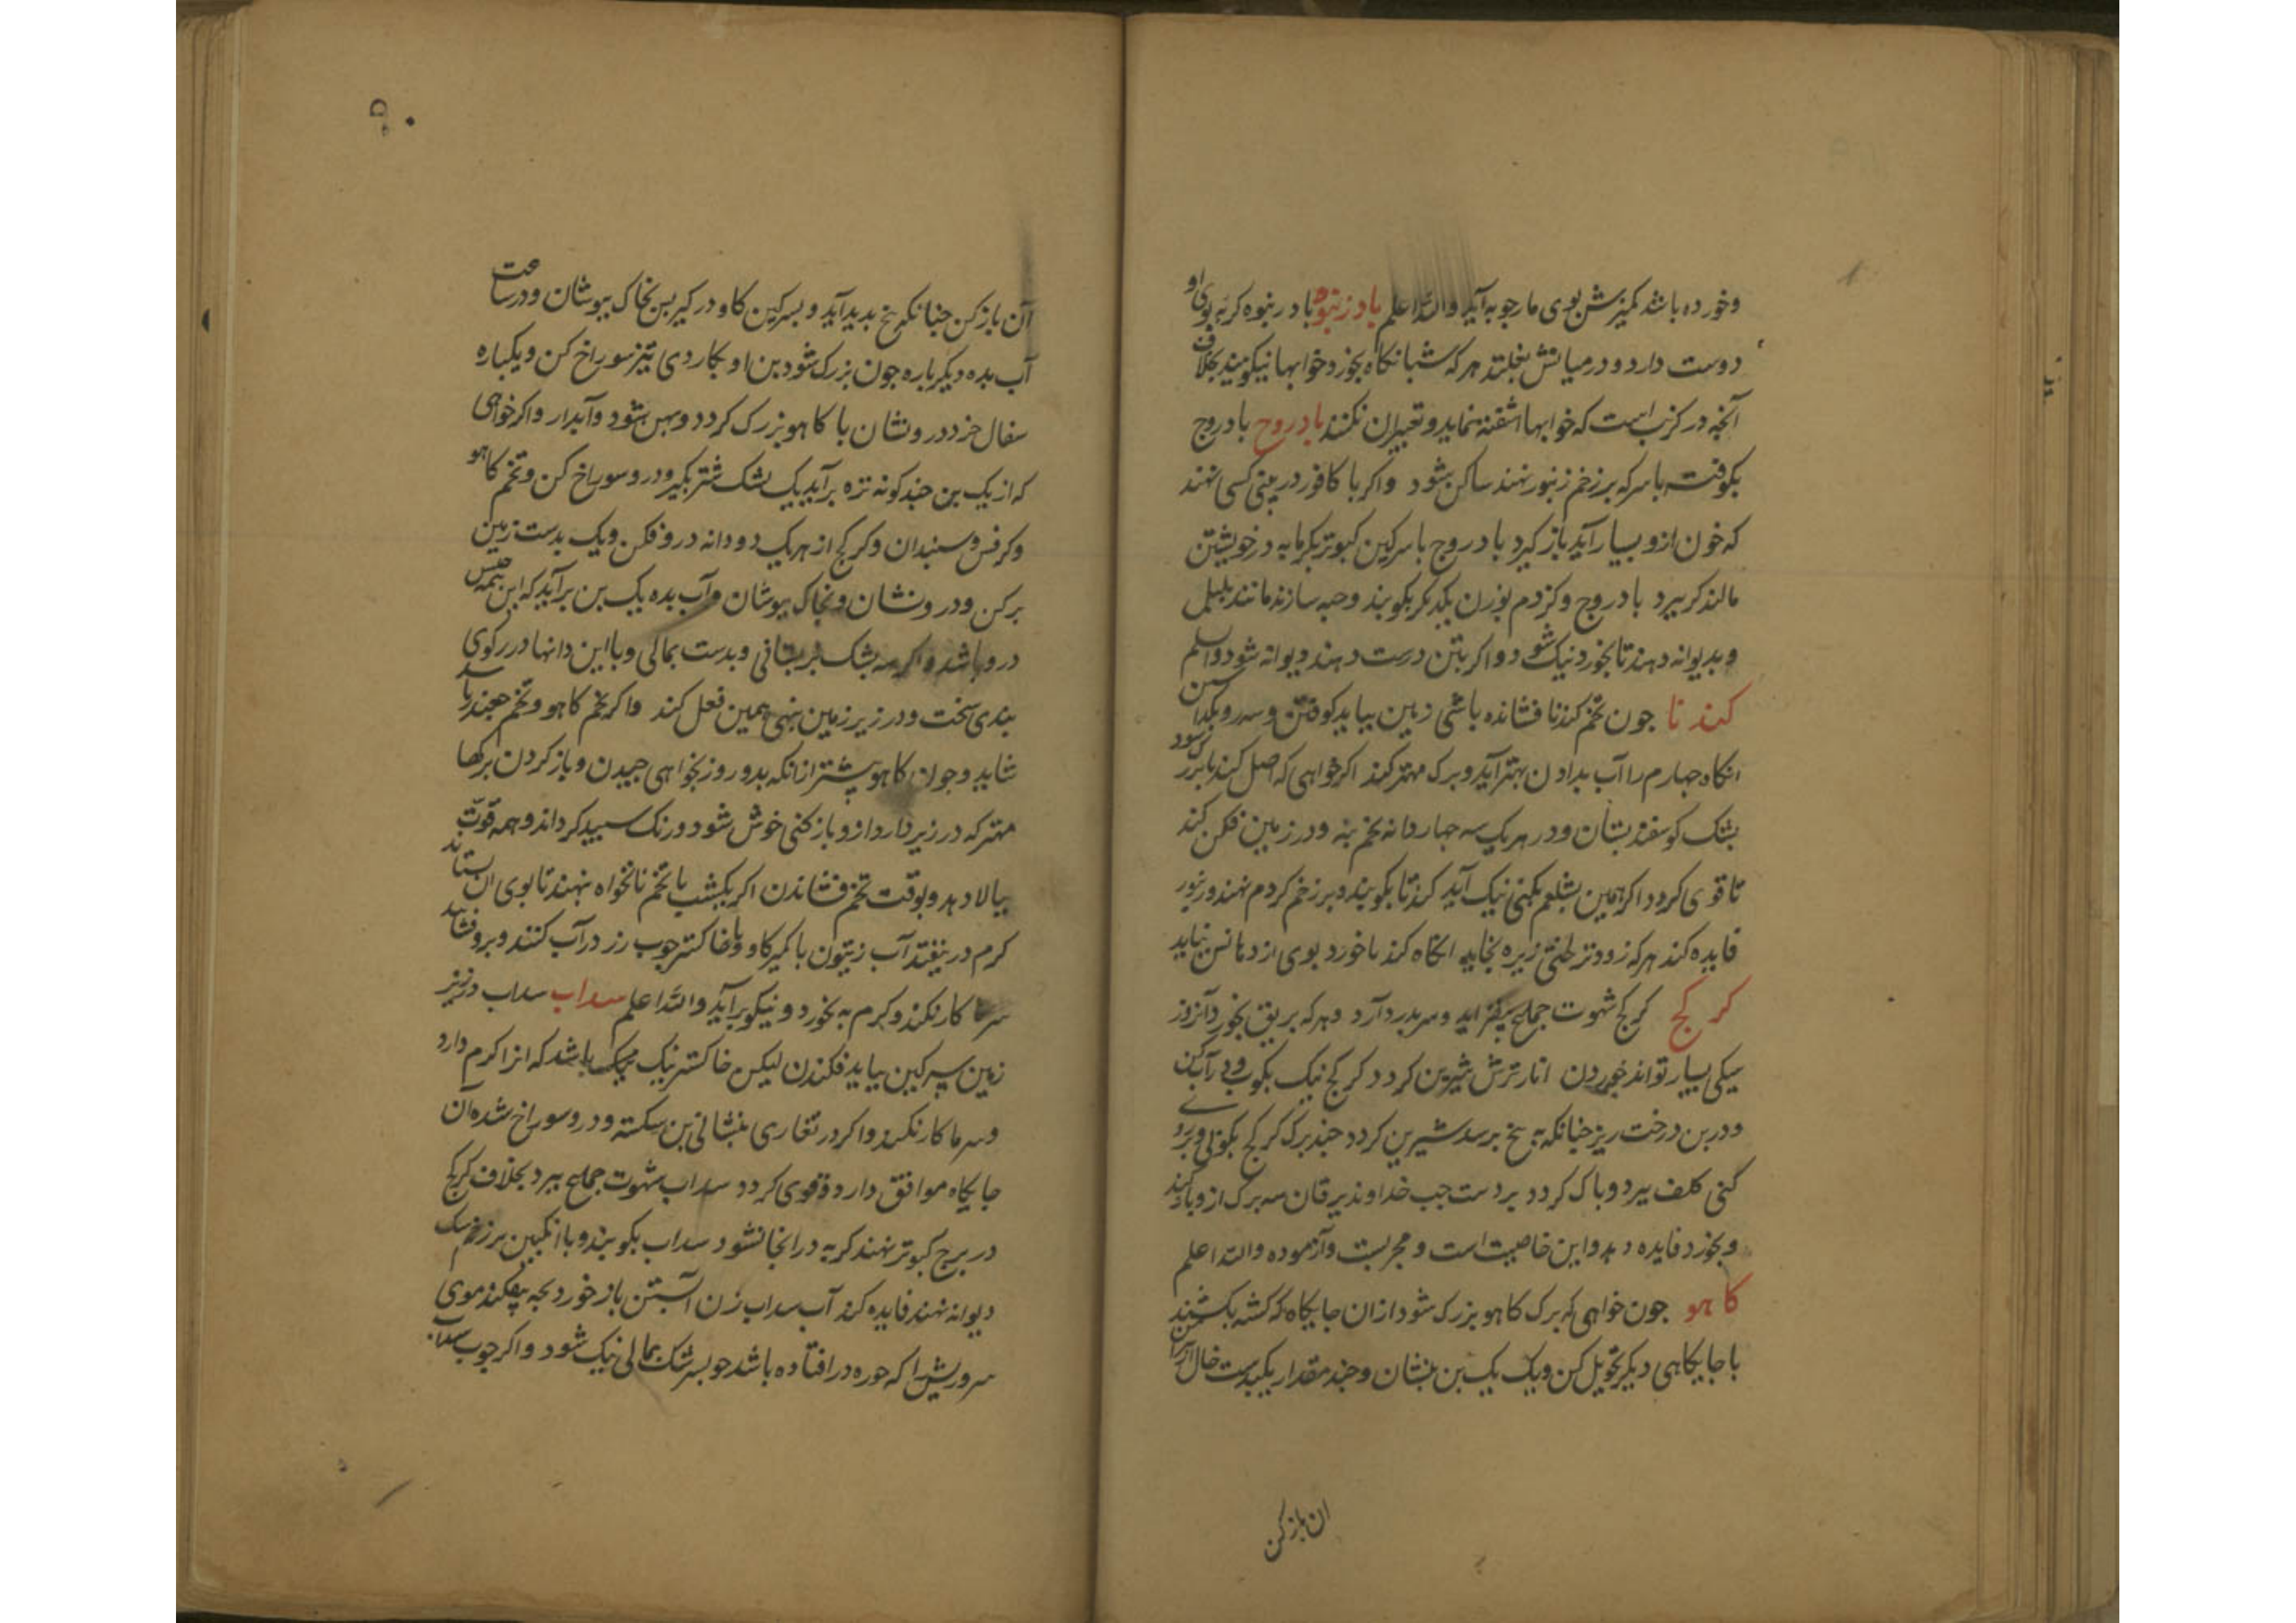 وخورده باشد کمیزش بوی مارجوبه آید والله اعلم بادرنبوه بادرنبوه کربه بوی او
دوست دارد و در میانش بغلتد هر که شبانکاه بخورد خوابها نیکو بیند بخلاف
آنجه در کرنب است که خوابها اشفته نماید و تعبیر ان نکنند بادروج بادروج
بکوفته با سرکه بر زخم زنبور نهند ساکن شود واکر با کافور در بینی کسی نهند
که خون ازو بسیار آید باز کیرد بادروج با سرکین کبوتر بکرمابه در خویشتن
مالند کر ببرد بادروج و کزدم بوزن یکدیکر بکوبند و حبه سازند مانند پلپل
و بدیوانه دهند تا بخورد نیک شود و اکر بتن درست دهند دیوانه شود و اسلم
کندنا جون تخم کندنا فشانده باشی زمین بباید کوفتن و سه روز بکذاشتن
انکاه جهارم را آب بدادن بهتر آید و برک مهتر کند اکر خواهی که اصل کندنا بزرک شود
بشک کوسفند بستان و در هر یک سه جهار دانه تخم بنه و در زمین فکن کند
تا قوی کردد اکر همین بشلغم بکنی نیک آید کندنا بکوبند و بر زخم کزدم نهند و زنبور
فایده کند هر که زودتر لختی زیره بخاید انکاه کندنا خورد بوی از دهانش نیاید
کرکج کرکج شهوت جماع بیفزاید و سر بدرد آرد و هر که بریق بخورد آنروز
سیکی بسیار تواند خوردن انار ترش شیرین کردد کرکج نیک بکوب و در آب کن
و در بن درخت ریز جنانکه به بیخ برسد شیرین کردد جند برک کرکج بکوبی و برو
کنی کلف ببرد و باک کردد بر دست جب خداوند یرقان سه برک ازو بادکند
و بخورد فایده دهد و این خاصیت است و مجربست و آزموده والله اعلم
کاهو جون خواهی که برک کاهو بزرک شود ازان جایکاه که کشته بکشند
با جایکاهی دیکر تحویل کن و یک یک بن بنشان و جند مقدار یکبدست خال از بن
ان باز کن
آن باز کن جنانکه بیخ بدید آید و بسرکین کاو در کیر بس بخاک بپوشان و در ساعت
آب بده دیکرباره جون بزرک شود بن او بکاردی تیز سوراخ کن و یکباره
سفال خرد درو نشان با کاهو بزرک کردد و بهن شود و آبدار واکر خواهی
که از یک بن جند کونه تره برآید یک بشک شتر بکیر و درو سوراخ کن و تخم کاهو
و کرفس و سبندان و کرکج از هر یک دو دانه درو فکن و یک بدست زمین
برکن و درو نشان و بخاک بپوشان و آب بده یک بن برآید که این همه جنس
درو باشد واکر سه بشک بربستانی و بدست بمالی و با این دانها در رکوی
بندی سخت و در زیر زمین نهی همین فعل کند واکر تخم کاهو و تخم جغندر باشد
شاید و جون کاهو پیشتر ازانکه بدو روز بخواهی جیدن و باز کردن برکها
مهتر که در زیر دارد ازو باز کنی خوش شود و رنک سبید کرداند و همه قوت
ببالا دهد و بوقت تخم فشاندن اکر یکشب با تخم نانخواه نهند تا بوی ان بستاند
کرم در نیفتد آب زیتون با کمیز کاو و یا خاکستر جوب رز در آب کنند و بروفشانند
سرما کار نکند و کرم به نخورد و نیکو برآید والله اعلم سداب سداب در زیر
زمین سرکین بباید فکندن لیکن خاکستر نیک نیک باشد که انرا کرم دارد
و سرما کار نکند واکر در تغاری بنشانی بن شکسته و درو سوراخ شده آن
جایکاه موافق دارد و قوی کردد سداب شهوت جماع ببرد بخلاف کرکج
در برج کبوتر نهند کربه در انجا نشود سداب بکوبند و با انکبین بر زخم سک
دیوانه نهند فایده کند آب سداب زن آبستن باز خورد بجه بیفکند موی
سر و ریش را که خوره در افتاده باشد جو بسرشک بمالی نیک شود واکر جوب سداب